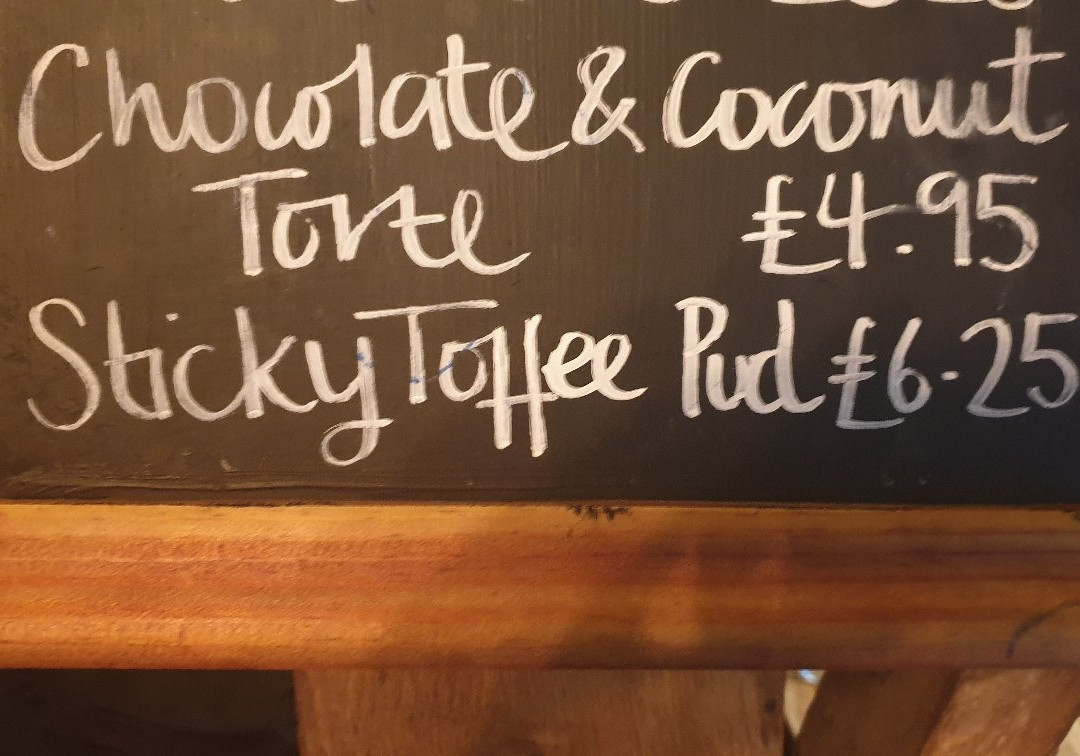 Chocolate & Coconut
Torte £4.95
Sticky Toffee Pud £6.25